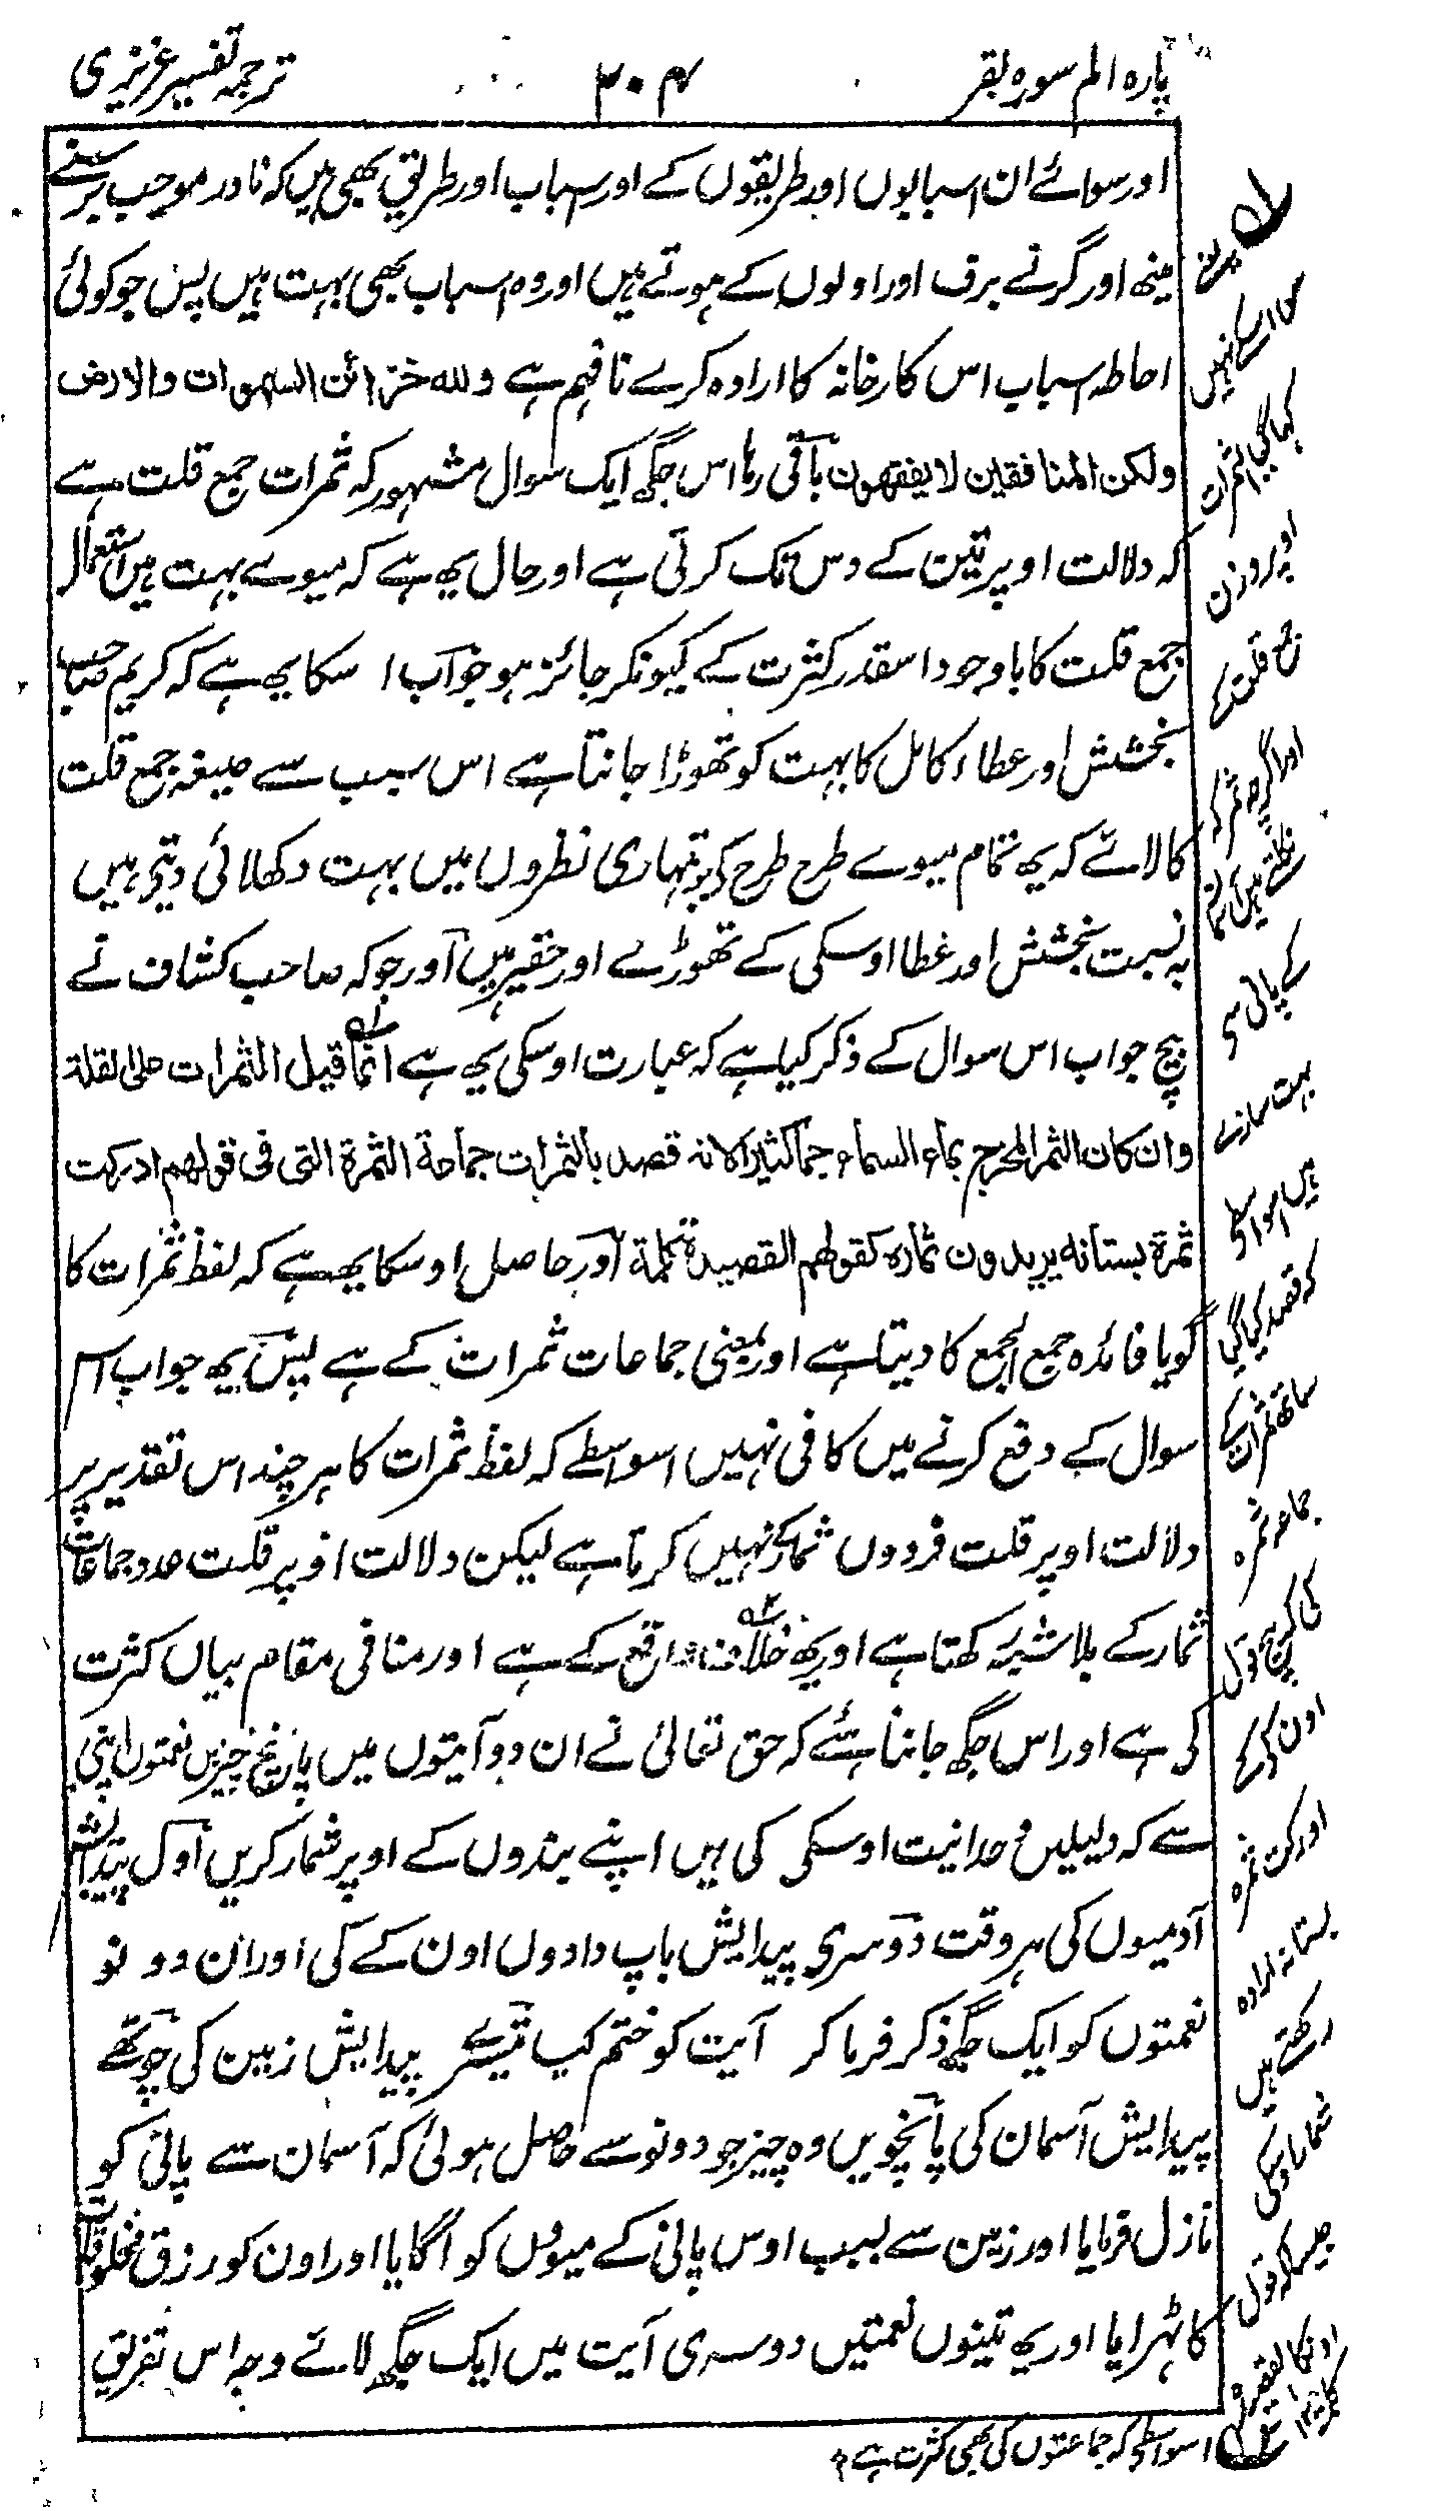 پاره الم سوره بقر
۲۰۴
ترجمہ تفسیر عزیزی
اور سوائے ان اسبابوں اور طریقوں کے اور اسباب اور طریق بھی ہیں کہ نادر موجب برسنے
مینھ اور گرنے برف اور اولوں کے ہوتے ہیں اور وہ اسباب بھی بہت ہیں پس جو کوئی
احاطہ اسباب اس کارخانہ کا ارادہ کرے نافہم ہے ولله خزائن السموات والارض
ولکن المنافقین لا یفقهون باقی رہا اس جگہ ایک سوال مشہور کہ ثمرات جمع قلت ہے
کہ دلالت اوپر تین کے دس تک کرتی ہے اور حال یھ ہے کہ میوے بہت ہیں استعمال
جمع قلت کا باوجود اسقدر کثرت کے کیونکر جائز ہو جواب اسکا یھ ہے کہ کریم صاحب
بخشش اور عطاء کامل کا بہت کو تھوڑا جانتا ہے اس سبب سے صیغہ جمع قلت
کا لائے کہ یھ تمام میوے طرح طرح کے جو تمہاری نظروں میں بہت دکھلائی دیتی ہیں
بہ نسبت بخشش اور عطا اوسکی کے تھوڑے اور حقیر ہیں اور جو کہ صاحب کشاف نے
بیچ جواب اس سوال کے ذکر کیا ہے کہ عبارت اوسکی یھ ہے انما قیل الثمرات علی القلة
وان کان الثمر المخرج بماء السماء جما کثیرا لانه قصد بالثمرات جماعة الثمرة التی فی قولهم ادرکت
ثمرة بستانه یریدون ثماره کقولهم القصیدة کلمة اور حاصل اوسکا یھ ہے کہ لفظ ثمرات کا
گویا فائدہ جمع الجمع کا دیتا ہے اور بمعنی جماعات ثمرات کے ہے پس یھ جواب اس
سوال کے دفع کرنے میں کافی نہیں اسواسطے کہ لفظ ثمرات کا ہر چند اس تقدیر پر
دلالت اوپر قلت فردوں ثمار کے نہیں کرتا ہے لیکن دلالت اوپر قلت عدد جماعات
ثمار کے بلا شبہ رکھتا ہے اور یھ خلاف واقع کے ہے اور منافی مقام بیاں کثرت
کی ہے اور اس جگہ جاننا چاہئے کہ حق تعالیٰ نے ان دو آیتوں میں پانچ چیزیں نعمتوں اپنی
سے کہ دلیلیں وحدانیت اوسکی کی ہیں اپنے بندوں کے اوپر شمار کریں اول پیدایش
آدمیوں کی ہر وقت دوسری پیدایش باپ دادوں اون کے کی اور ان دونو
نعمتوں کو ایک جگہ ذکر فرما کر آیت کو ختم کیا تیسرے پیدایش زمین کی چوتھے
پیدایش آسمان کی پانچویں وہ چیز جو دونو سے حاصل ہوئی کہ آسمان سے پانی کو
نازل فرمایا اور زمین سے بسبب اوس پانی کے میوں کو اگایا اور اون کو رزق مخلوقات
کا ٹہرایا اور یھ تینوں نعمتیں دوسری آیت میں ایک جگہ لائے وجہ اس تفریق
سوا اسکے نہیں
کہا گیا ثمرات
اوپر وزن
جمع قلت کے
اور اگرچہ ثمر کہ
نکلتے ہیں آسمان
کے پانی سے
بہت سارے
ہیں اسواسطے
کہ قصد کیا گیا
ساتھ ثمرات کے
جماعت ثمرہ
کی کہ بیچ قول
اون کے کہ
ادرکت ثمرہ
بستانہ ارادہ
رکھتے ہیں
ثمار اوسکی
جیسا کہ قول
اونکا القصیدة
کلمة
اسواسطے کہ جماعتوں کی بھی کثرت ہے